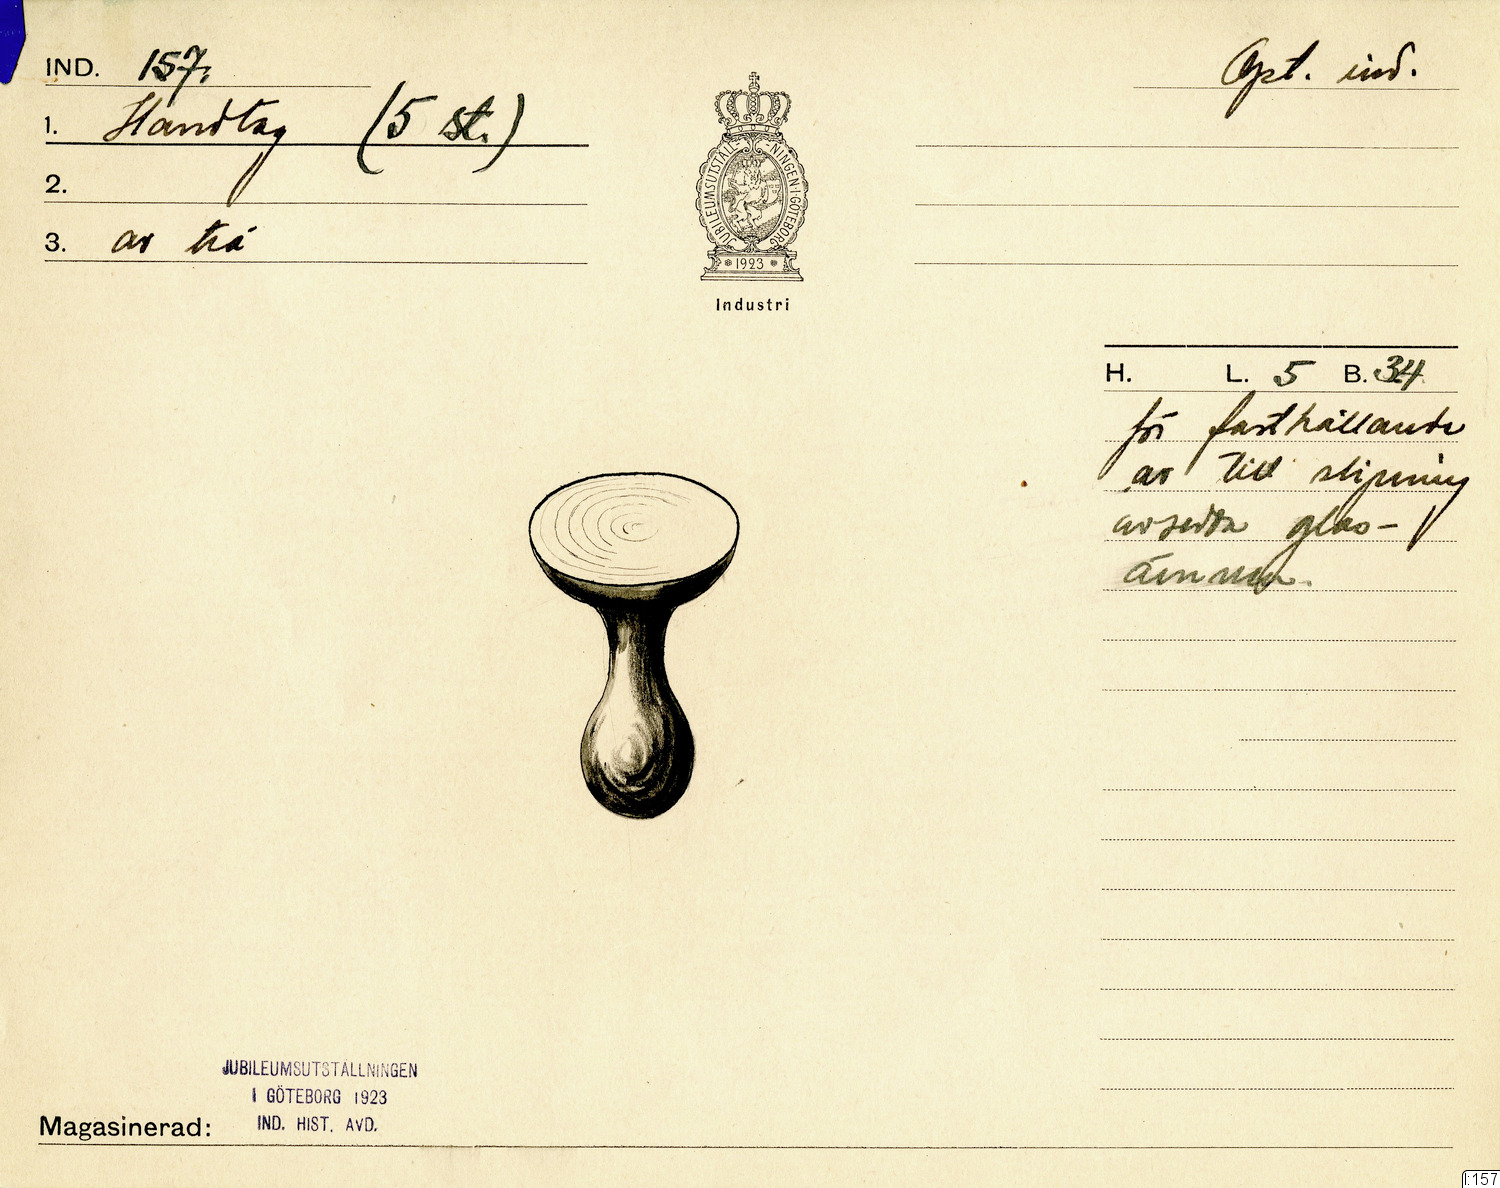 IND. 157.
Opt. ind.
1. Handtag (5 st.)
2.
3. av trä
JUBILEUMSUTSTÄLL-NINGEN·I·GÖTEBORG
1923
Industri
H. L. 5 B. 34
för fasthållande
av till slipning
avsedda glas-
ämnen.
JUBILEUMSUTSTÄLLNINGEN
I GÖTEBORG 1923
IND. HIST. AVD.
Magasinerad:
I:157